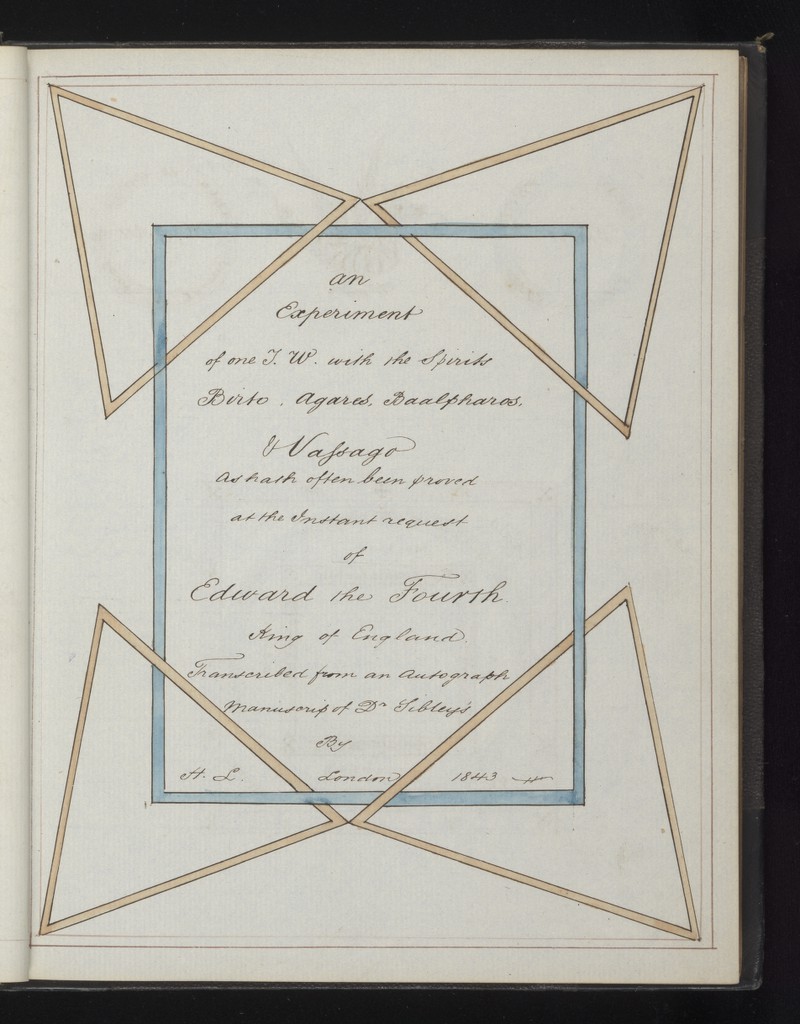 an
Experiment
of one J. W. with the Spirits
Birto, Agares, Baalpharos,
& Vassago
As hath often been proved
at the Instant request
of
Edward the Fourth
King of England.
Transcribed from an Autograph
Manuscrip of Dr Sibley's
By
H. L. London 1843